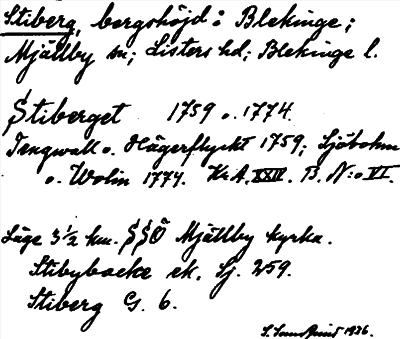 Stiberg, bergshöjd i Blekinge;
Mjällby sn; Listers hd; Blekinge l.
Stiberget 1759 o. 1774.
Tengwall o. Hägerflyckt 1759; Sjöbohm
o. Wolin 1774. Kr. A. XXIV. B. N:o VI.
Läge 3 1/2 km. SSÖ Mjällby kyrka.
Stibybacke ek. Sj. 259.
Stiberg G. 6.
1926.